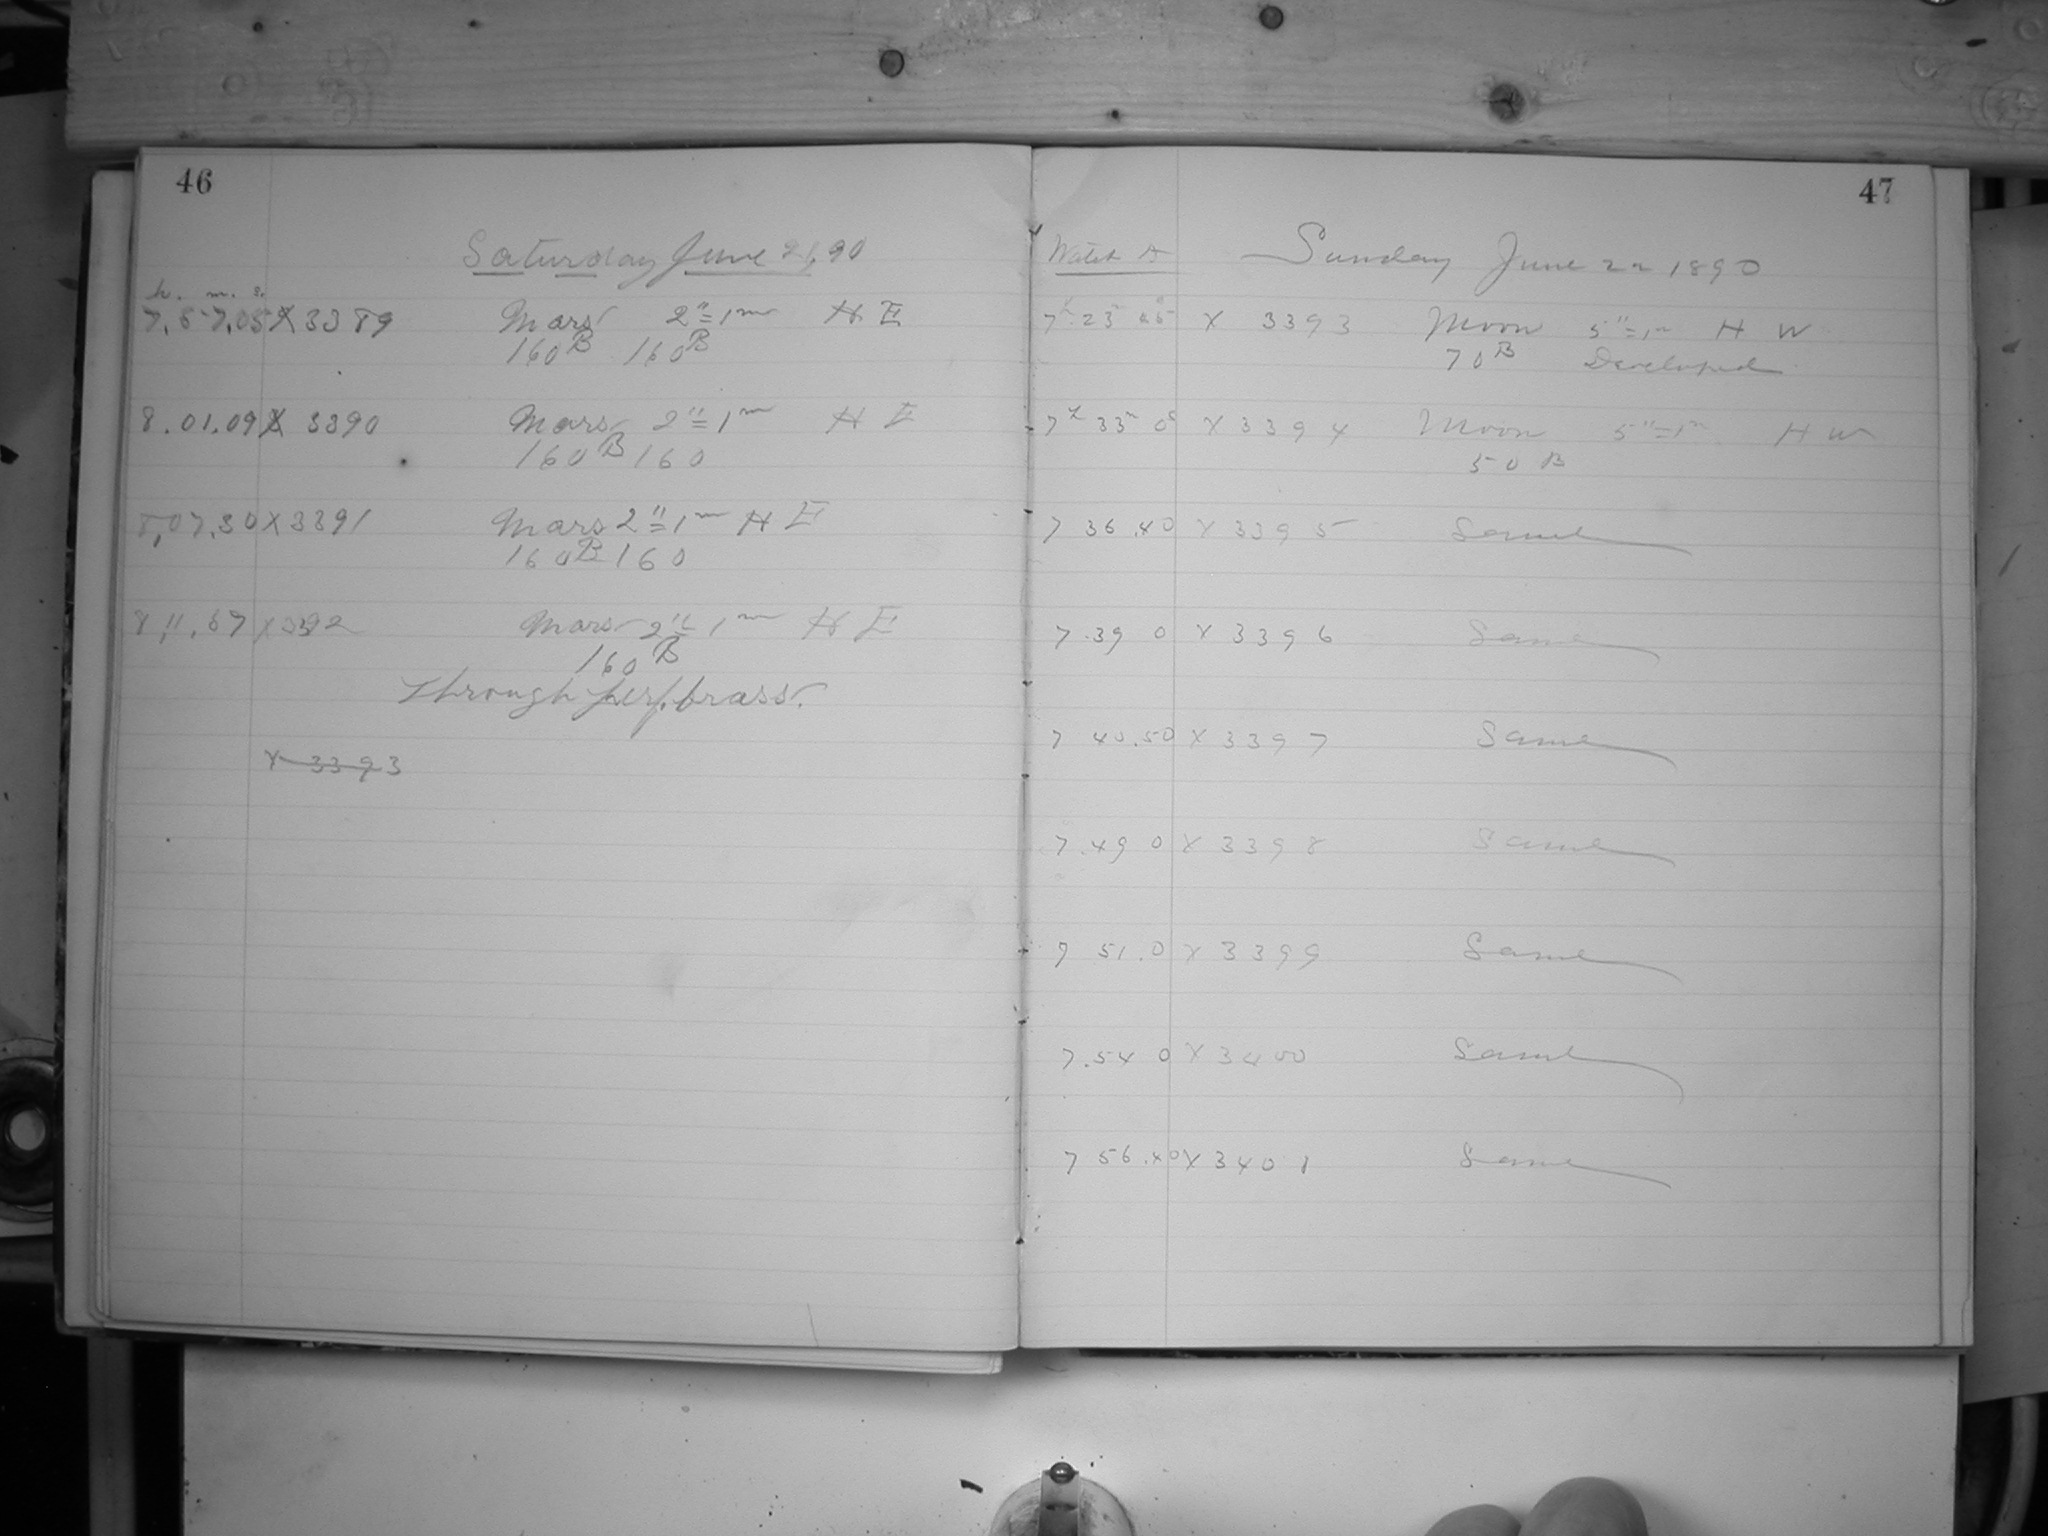 46
Saturday June 21, 90
h. m. s.
7.57.05 X 3389 Mars 2"=1m H E
160 B 160 B
8.01.09 X 3390 Mars 2"=1m H E
160 B 160
8.07.30 X 3391 Mars 2"=1m H E
160 B 160
8.11.57 X 3392 Mars 2"=1m H E
160 B
Through perf. brass.
X 3393
47
Watch A Sunday June 22 1890
7h 23 45s X 3393 Moon 5"=1m H W
70 B Developed
7h 33m 0s X 3394 Moon 5"=1m H W
50 B
7 36.40 X 3395 Same
7.39 0 X 3396 Same
7 40.50 X 3397 Same
7.49 0 X 3398 Same
7 51.0 X 3399 Same
7.54 0 X 3400 Same
7 56.40 X 3401 Same